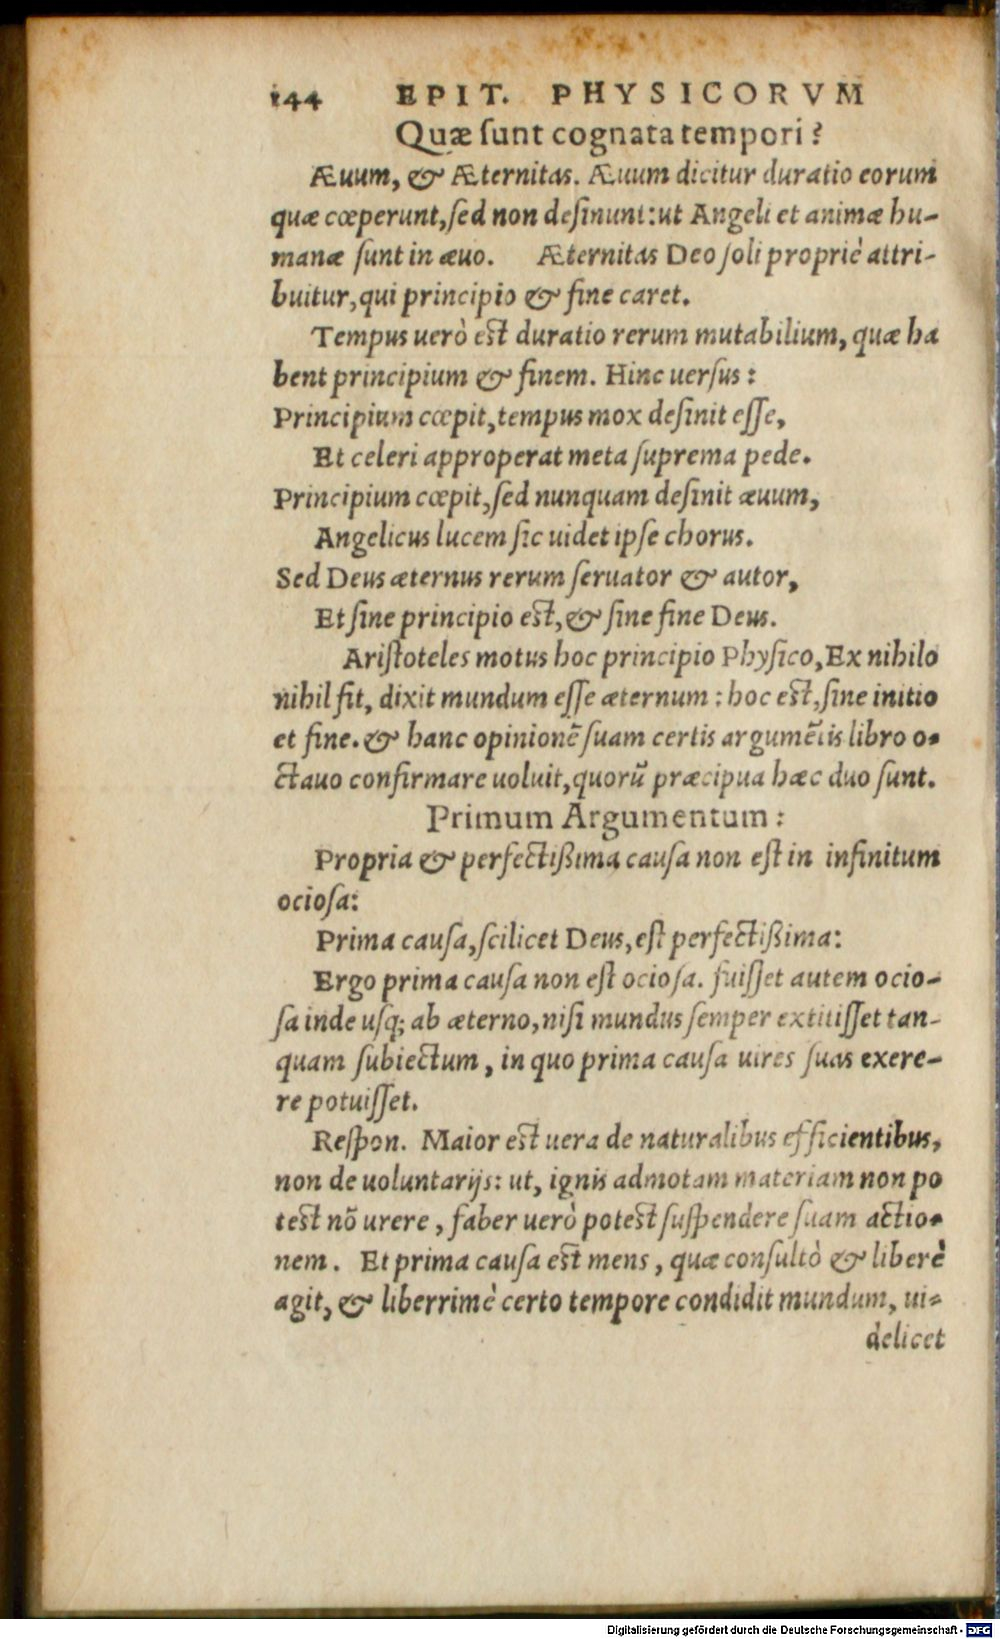 144 EPIT. PHYSICORVM
Quæ ſunt cognata tempori?
Æuum, & Æternitas. Æuum dicitur duratio eorum
quæ cœperunt, ſed non deſinunt: ut Angeli et animæ hu-
manæ ſunt in æuo. Æternitas Deo ſoli propriè attri-
buitur, qui principio & fine caret.
Tempus uerò est duratio rerum mutabilium, quæ ha
bent principium & finem. Hinc uerſus:
Principium cœpit, tempus mox deſinit eſſe,
Et celeri approperat meta ſuprema pede.
Principium cœpit, ſed nunquam deſinit æuum,
Angelicus lucem ſic uidet ipſe chorus.
Sed Deus æternus rerum ſeruator & autor,
Et ſine principio est, & ſine fine Deus.
Ariſtoteles motus hoc principio Phyſico, Ex nihilo
nihil fit, dixit mundum eſſe æternum: hoc est, ſine initio
et fine. & hanc opinionē ſuam certis argumētis libro o-
ctauo confirmare uoluit, quorū præcipua hæc duo ſunt.
Primum Argumentum:
Propria & perfectißima cauſa non eſt in infinitum
ocioſa:
Prima cauſa, ſcilicet Deus, eſt perfectißima:
Ergo prima cauſa non eſt ocioſa. fuiſſet autem ocio-
ſa inde uſq; ab æterno, niſi mundus ſemper extitiſſet tan-
quam ſubiectum, in quo prima cauſa uires ſuas exere-
re potuiſſet.
Reſpon. Maior est uera de naturalibus efficientibus,
non de uoluntarijs: ut, ignis admotam materiam non po
test nō urere, faber uerò potest ſuſpendere ſuam actio-
nem. Et prima cauſa est mens, quæ conſultò & liberè
agit, & liberrimè certo tempore condidit mundum, ui-
delicet
Digitalisierung gefördert durch die Deutsche Forschungsgemeinschaft - DFG